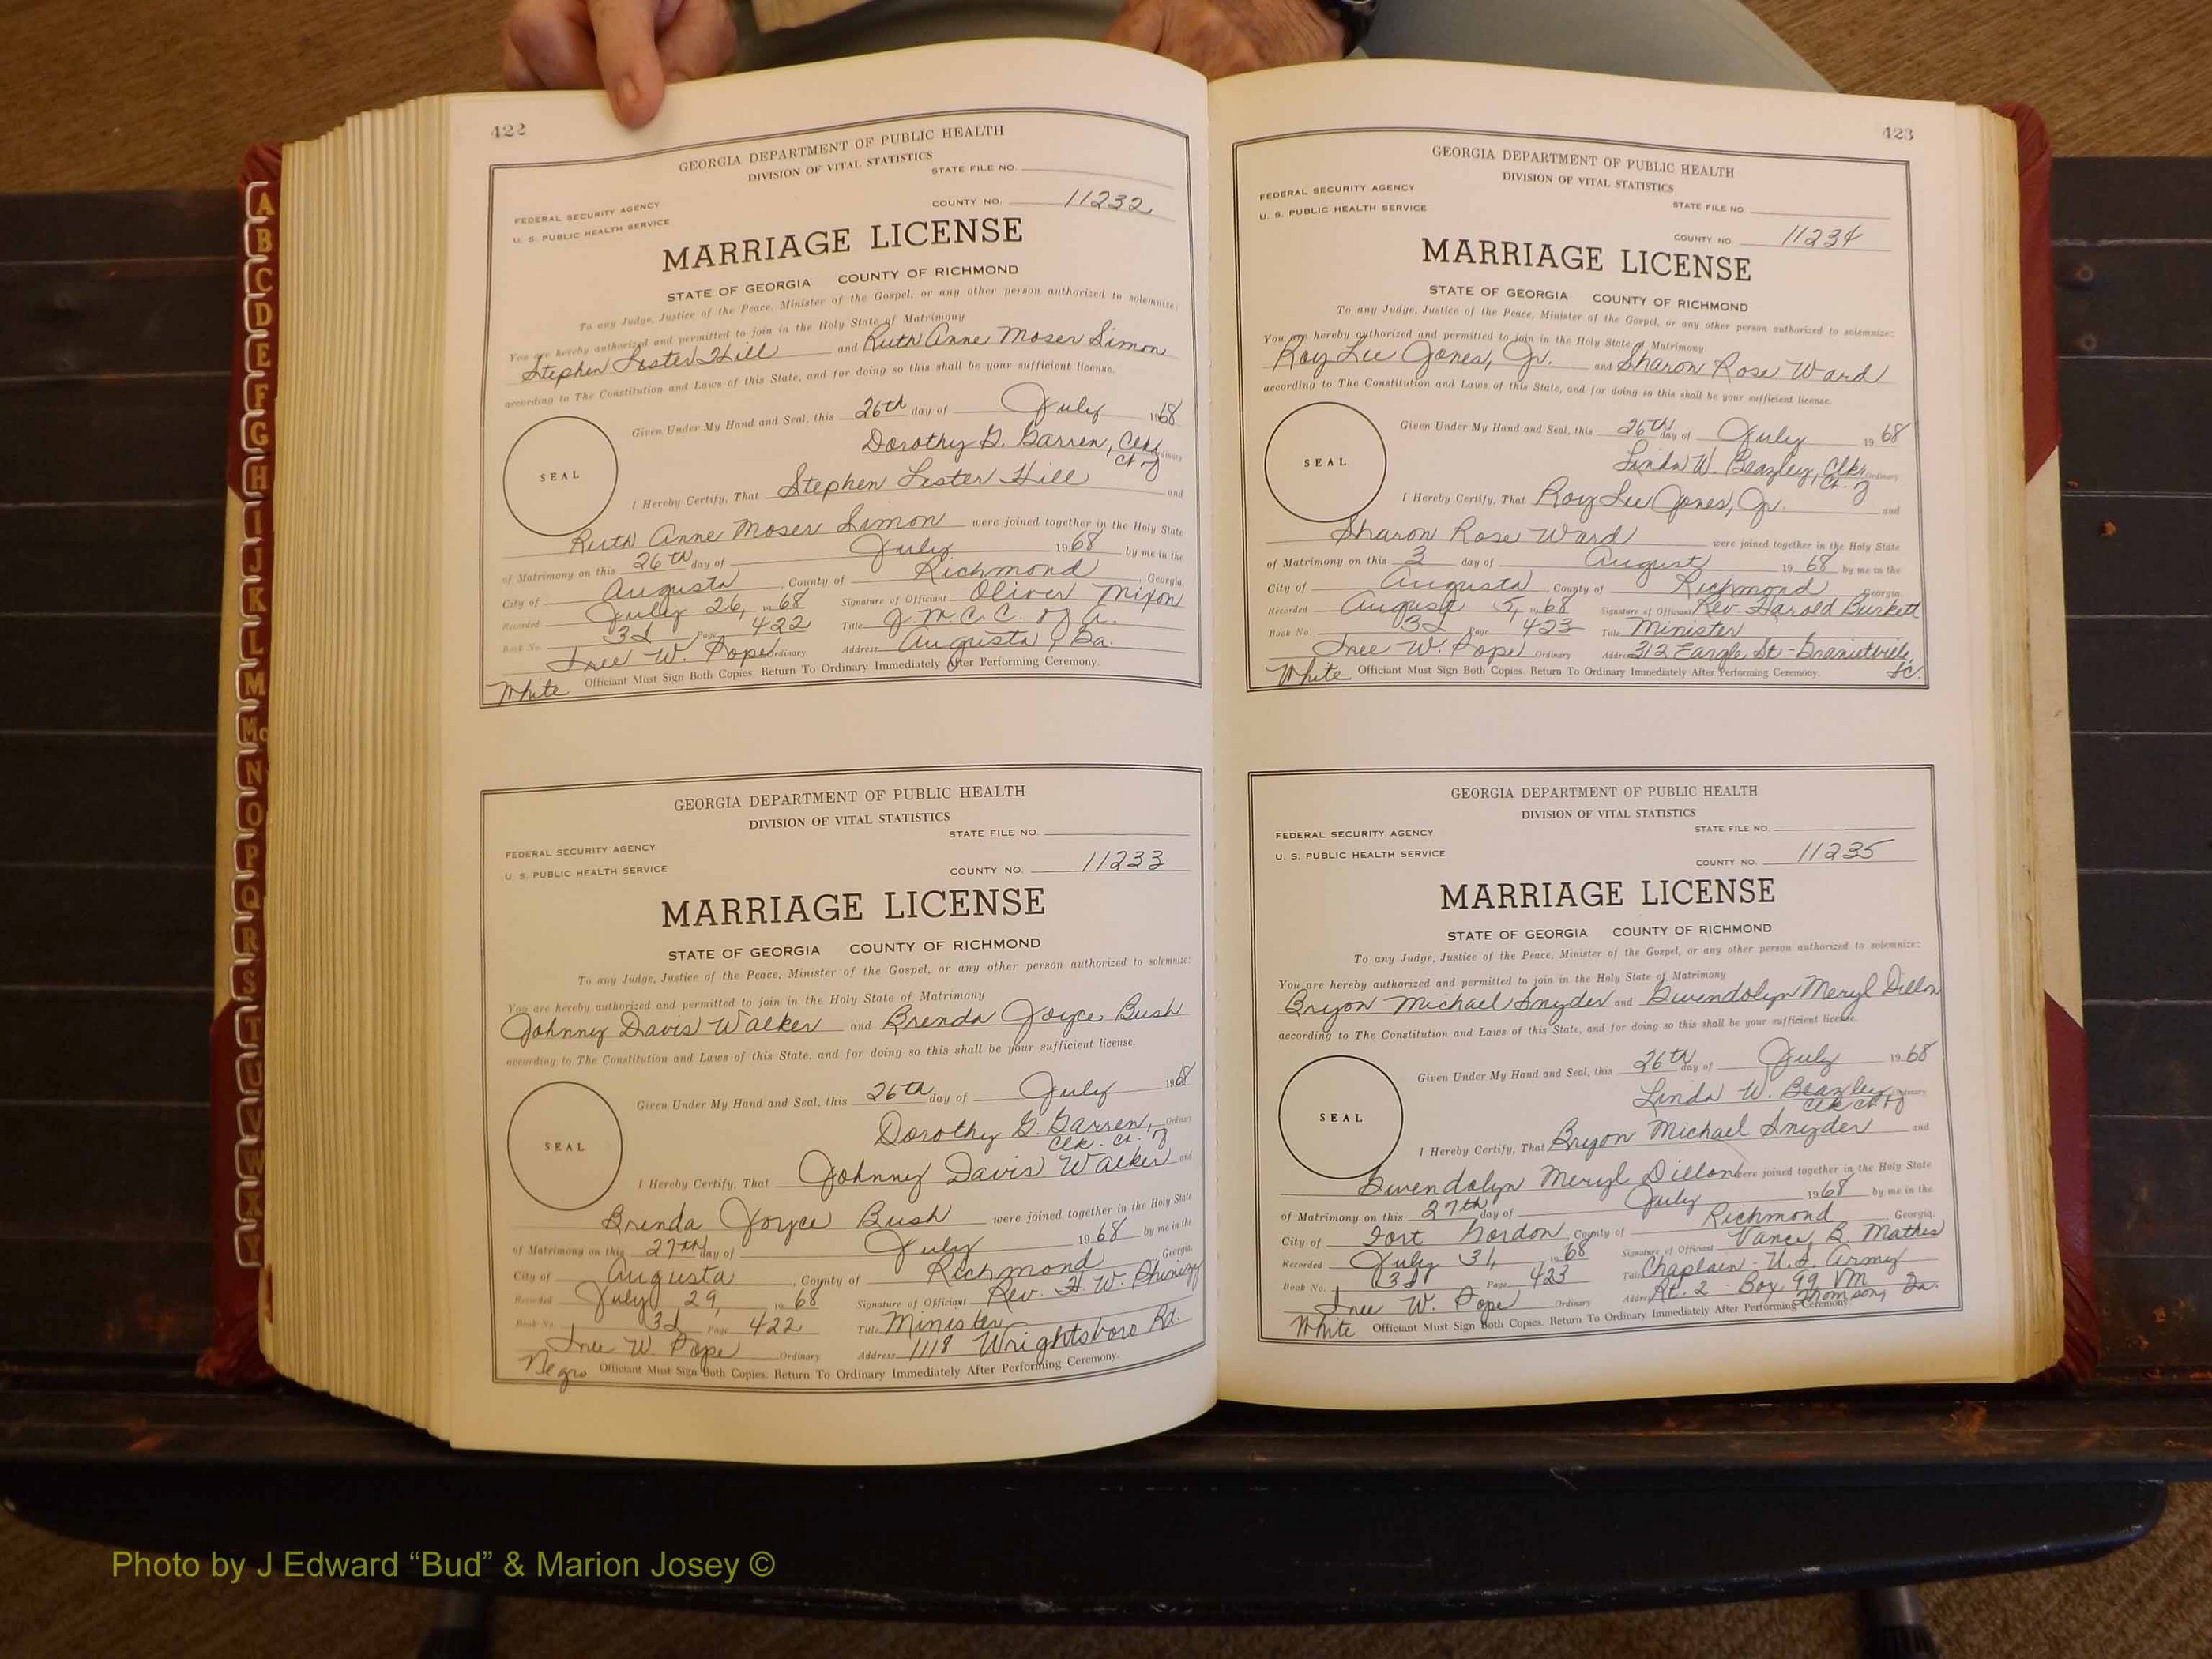 A
B
C
D
E
F
G
H
I
J
K
L
M
Mc
N
O
P
Q
R
S
T
U
V
W
X
Y
422
GEORGIA DEPARTMENT OF PUBLIC HEALTH
DIVISION OF VITAL STATISTICS
STATE FILE NO.
FEDERAL SECURITY AGENCY
U. S. PUBLIC HEALTH SERVICE
COUNTY NO. 11232
MARRIAGE LICENSE
STATE OF GEORGIA COUNTY OF RICHMOND
To any Judge, Justice of the Peace, Minister of the Gospel, or any other person authorized to solemnize:
You are hereby authorized and permitted to join in the Holy State of Matrimony
Stephen Lester Hill and Ruth Anne Moser Simon
according to The Constitution and Laws of this State, and for doing so this shall be your sufficient license.
Given Under My Hand and Seal, this 26th day of July 1968
Dorothy G. Garren, Clk. Ordinary
Ct. of
SEAL
I Hereby Certify, That Stephen Lester Hill and
Ruth Anne Moser Simon were joined together in the Holy State
of Matrimony on this 26th day of July 1968 by me in the
City of Augusta, County of Richmond Georgia.
Recorded July 26, 1968 Signature of Officiant Oliver Mixon
Book No. 3d Page 422 Title J.M.C.C. of A.
W. Pope Ordinary Address Augusta, Ga.
White Officiant Must Sign Both Copies. Return To Ordinary Immediately After Performing Ceremony.
GEORGIA DEPARTMENT OF PUBLIC HEALTH
DIVISION OF VITAL STATISTICS
STATE FILE NO.
FEDERAL SECURITY AGENCY
U. S. PUBLIC HEALTH SERVICE
COUNTY NO. 11233
MARRIAGE LICENSE
STATE OF GEORGIA COUNTY OF RICHMOND
To any Judge, Justice of the Peace, Minister of the Gospel, or any other person authorized to solemnize:
You are hereby authorized and permitted to join in the Holy State of Matrimony
Johnny Davis Walker and Brenda Joyce Bush
according to The Constitution and Laws of this State, and for doing so this shall be your sufficient license.
Given Under My Hand and Seal, this 26th day of July 1968
Dorothy G. Garren, Ordinary
Clk. Ct. of
SEAL
I Hereby Certify, That Johnny Davis Walker and
Brenda Joyce Bush were joined together in the Holy State
of Matrimony on this 27th day of July 1968 by me in the
City of Augusta, County of Richmond Georgia.
Recorded July 29, 1968 Signature of Officiant Rev. H. W. Phinizy
Book No. 3d Page 422 Title Minister
W. Pope Ordinary Address 1118 Wrightsboro Rd.
Negro Officiant Must Sign Both Copies. Return To Ordinary Immediately After Performing Ceremony.
423
GEORGIA DEPARTMENT OF PUBLIC HEALTH
DIVISION OF VITAL STATISTICS
FEDERAL SECURITY AGENCY
U. S. PUBLIC HEALTH SERVICE
STATE FILE NO.
COUNTY NO. 11234
MARRIAGE LICENSE
STATE OF GEORGIA COUNTY OF RICHMOND
To any Judge, Justice of the Peace, Minister of the Gospel, or any other person authorized to solemnize:
You are hereby authorized and permitted to join in the Holy State of Matrimony
Roy Lee Jones, Jr. and Sharon Rose Ward
according to The Constitution and Laws of this State, and for doing so this shall be your sufficient license.
Given Under My Hand and Seal, this 26th day of July 1968
Linda W. Beazley, Clk. Ordinary
Ct. of
SEAL
I Hereby Certify, That Roy Lee Jones, Jr. and
Sharon Rose Ward were joined together in the Holy State
of Matrimony on this 3 day of August 1968 by me in the
City of Augusta, County of Richmond Georgia.
Recorded August 5, 1968 Signature of Officiant Rev. Harold Burkett
Book No. 3d Page 423 Title Minister
W. Pope Ordinary Address 312 Eargle St - Graniteville,
S.C.
White Officiant Must Sign Both Copies. Return To Ordinary Immediately After Performing Ceremony.
GEORGIA DEPARTMENT OF PUBLIC HEALTH
DIVISION OF VITAL STATISTICS
STATE FILE NO.
FEDERAL SECURITY AGENCY
U. S. PUBLIC HEALTH SERVICE
COUNTY NO. 11235
MARRIAGE LICENSE
STATE OF GEORGIA COUNTY OF RICHMOND
To any Judge, Justice of the Peace, Minister of the Gospel, or any other person authorized to solemnize:
You are hereby authorized and permitted to join in the Holy State of Matrimony
Bryon Michael Snyder and Gwendolyn Meryl Dillon
according to The Constitution and Laws of this State, and for doing so this shall be your sufficient license.
Given Under My Hand and Seal, this 26th day of July 1968
Linda W. Beazley, Ordinary
Clk. Ct. of
SEAL
I Hereby Certify, That Bryon Michael Snyder and
Gwendolyn Meryl Dillon were joined together in the Holy State
of Matrimony on this 27th day of July 1968 by me in the
City of Fort Gordon, County of Richmond Georgia.
Recorded July 31, 1968 Signature of Officiant Vance B. Mathis
Book No. 3d Page 423 Title Chaplain - U.S. Army
W. Pope Ordinary Address Rt. 2 - Box 99 VM
Thomson, Ga.
White Officiant Must Sign Both Copies. Return To Ordinary Immediately After Performing Ceremony.
Photo by J Edward “Bud” & Marion Josey ©